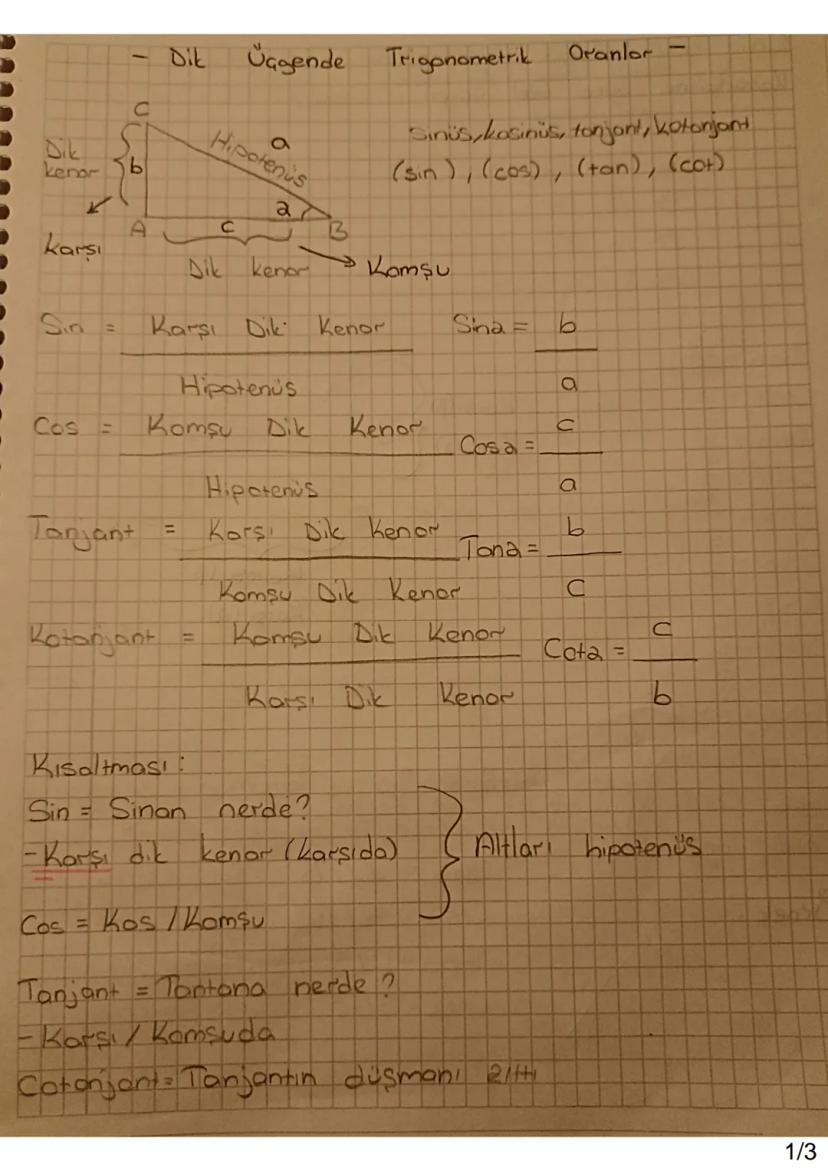 - Dik Üçgende Trigonometrik Oranlar -
C
Dik kenar
b
Hipotenüs
a
sinüs, kosinüs, tanjant, kotanjant
(sin), (cos), (tan), (cot)
karşı
A
c
a
B
Dik kenar
Komşu
Sin = Karşı Dik Kenar
Hipotenüs
Sina = b
a
Cos = Komşu Dik Kenar
Hipotenüs
Cosa = c
a
Tanjant = Karşı Dik Kenar
Komşu Dik Kenar
Tana = b
c
Kotanjant = Komşu Dik Kenar
Karşı Dik Kenar
Cota = c
b
Kısaltması:
Sin = Sinan nerde?
- Karşı dik kenar (karşıda)
Altları hipotenüs
Cos = Kos / Komşu
Tanjant = Tantana nerde?
- Karşı / Komşuda
Cotanjant = Tanjantın düşmanı
1/3